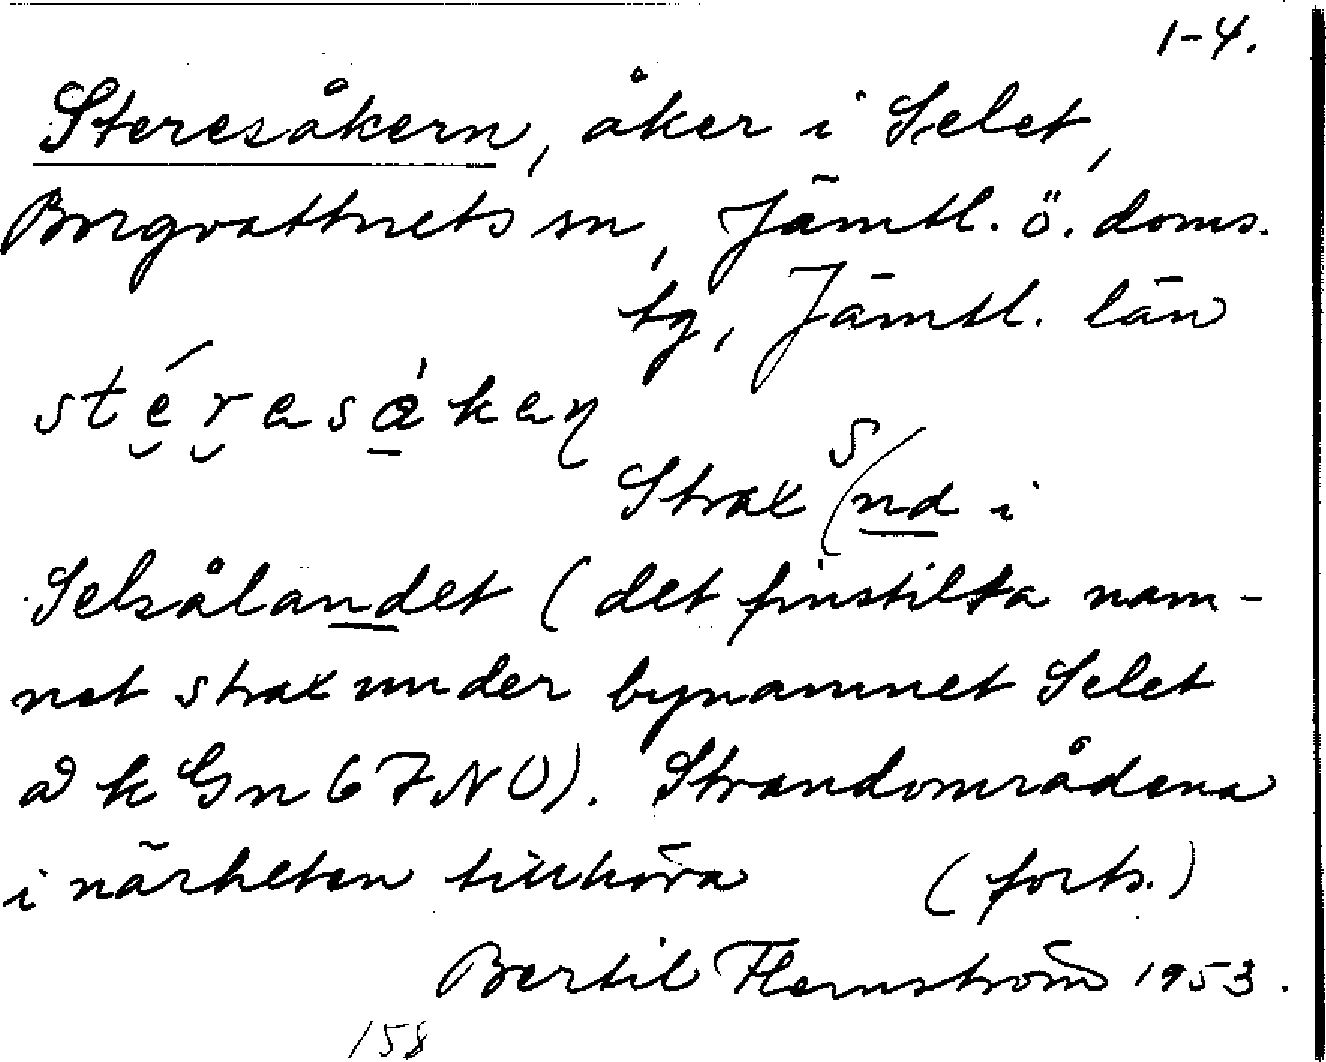 1-4.
Steresåkern, åker i Selet,
Borgvattnets sn, Jämtl. ö. doms.
tg, Jämtl. län
stérasàken
Strax S nd i
Selsålandet (det finstilta nam-
net strax under bynamnet Selet
å k Gn 67 NO). Strandområdena
i närheten tillhöra (forts.)
Bertil Flemström 1953.
158